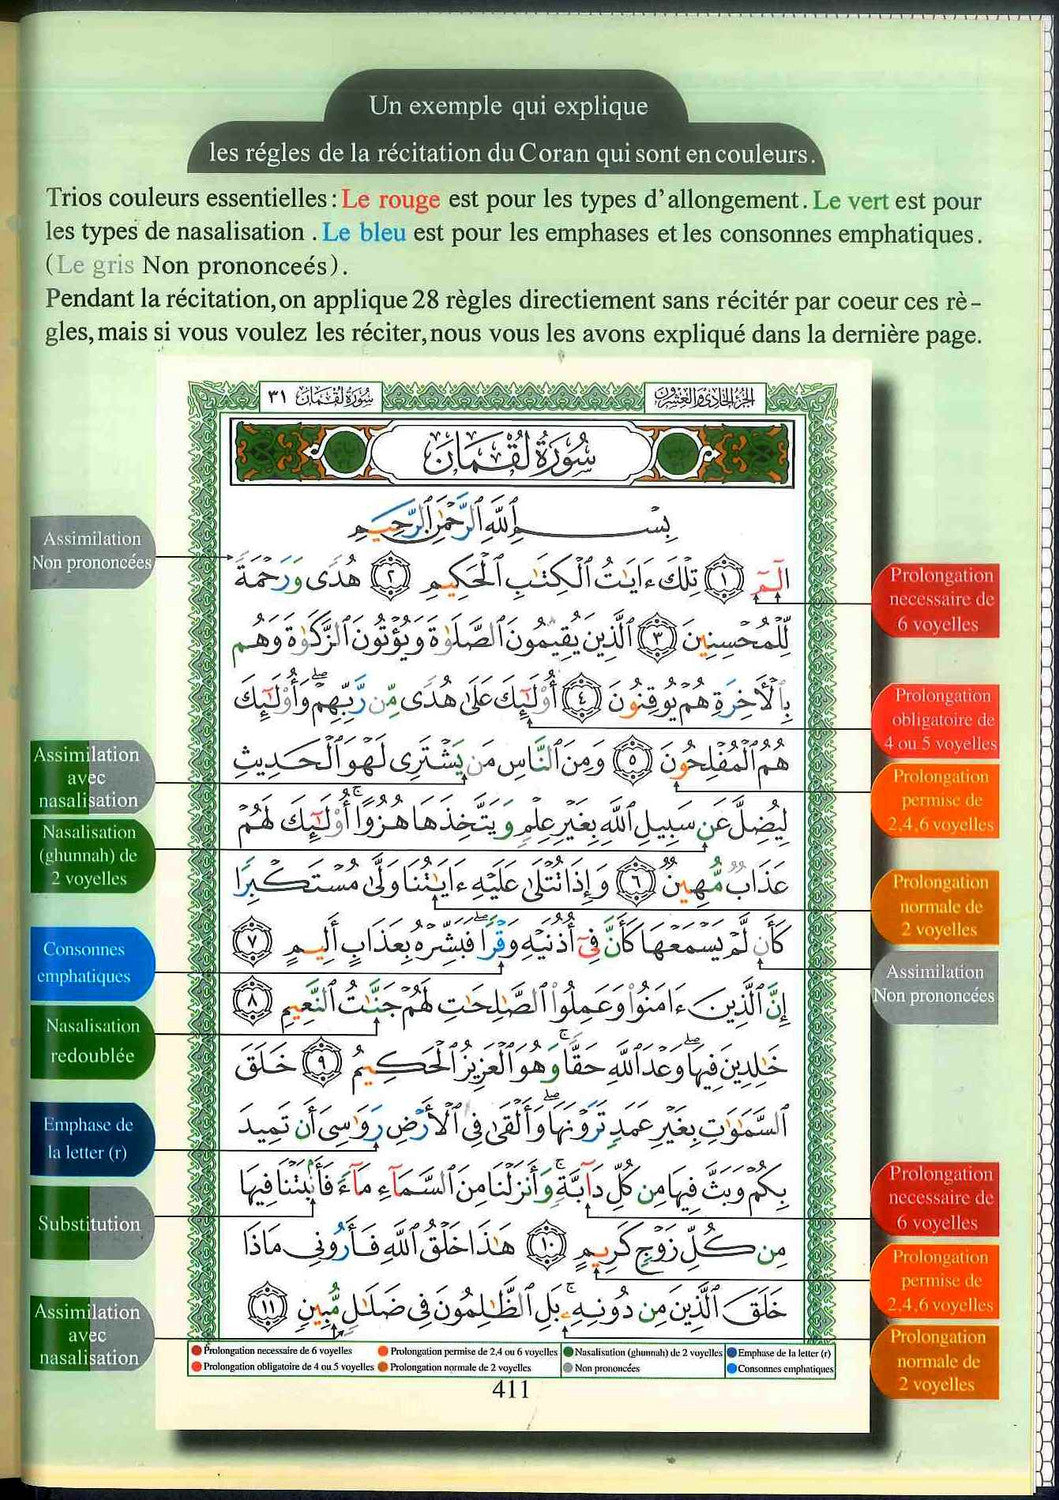 Un exemple qui explique
les régles de la récitation du Coran qui sont en couleurs.
Trios couleurs essentielles: Le rouge est pour les types d'allongement. Le vert est pour
les types de nasalisation . Le bleu est pour les emphases et les consonnes emphatiques.
(Le gris Non prononceés).
Pendant la récitation, on applique 28 règles directiement sans récitér par coeur ces rè-
gles, mais si vous voulez les réciter, nous vous les avons expliqué dans la dernière page.
الجزء الحادي والعشرون
سورة لقمان ٣١
سُورَةُ لُقْمَان
بِسْمِ ٱللَّهِ ٱلرَّحْمَٰنِ ٱلرَّحِيمِ
الٓمٓ ١ تِلْكَ ءَايَٰتُ ٱلْكِتَٰبِ ٱلْحَكِيمِ ٢ هُدًى وَرَحْمَةً
لِّلْمُحْسِنِينَ ٣ ٱلَّذِينَ يُقِيمُونَ ٱلصَّلَوٰةَ وَيُؤْتُونَ ٱلزَّكَوٰةَ وَهُم
بِٱلْءَاخِرَةِ هُمْ يُوقِنُونَ ٤ أُو۟لَٰٓئِكَ عَلَىٰ هُدًى مِّن رَّبِّهِمْ ۖ وَأُو۟لَٰٓئِكَ
هُمُ ٱلْمُفْلِحُونَ ٥ وَمِنَ ٱلنَّاسِ مَن يَشْتَرِى لَهْوَ ٱلْحَدِيثِ
لِيُضِلَّ عَن سَبِيلِ ٱللَّهِ بِغَيْرِ عِلْمٍ وَيَتَّخِذَهَا هُزُوًا ۚ أُو۟لَٰٓئِكَ لَهُمْ
عَذَابٌ مُّهِينٌ ٦ وَإِذَا تُتْلَىٰ عَلَيْهِ ءَايَٰتُنَا وَلَّىٰ مُسْتَكْبِرًا
كَأَن لَّمْ يَسْمَعْهَا كَأَنَّ فِىٓ أُذُنَيْهِ وَقْرًا ۖ فَبَشِّرْهُ بِعَذَابٍ أَلِيمٍ ٧
إِنَّ ٱلَّذِينَ ءَامَنُوا۟ وَعَمِلُوا۟ ٱلصَّٰلِحَٰتِ لَهُمْ جَنَّٰتُ ٱلنَّعِيمِ ٨
خَٰلِدِينَ فِيهَا ۖ وَعْدَ ٱللَّهِ حَقًّا ۚ وَهُوَ ٱلْعَزِيزُ ٱلْحَكِيمُ ٩ خَلَقَ
ٱلسَّمَٰوَٰتِ بِغَيْرِ عَمَدٍ تَرَوْنَهَا ۖ وَأَلْقَىٰ فِى ٱلْأَرْضِ رَوَٰسِىَ أَن تَمِيدَ
بِكُمْ وَبَثَّ فِيهَا مِن كُلِّ دَآبَّةٍ ۚ وَأَنزَلْنَا مِنَ ٱلسَّمَآءِ مَآءً فَأَنۢبَتْنَا فِيهَا
مِن كُلِّ زَوْجٍ كَرِيمٍ ١٠ هَٰذَا خَلْقُ ٱللَّهِ فَأَرُونِى مَاذَا
خَلَقَ ٱلَّذِينَ مِن دُونِهِۦ ۚ بَلِ ٱلظَّٰلِمُونَ فِى ضَلَٰلٍ مُّبِينٍ ١١
Assimilation
Non prononcées
Assimilation
avec
nasalisation
Nasalisation
(ghunnah) de
2 voyelles
Consonnes
emphatiques
Nasalisation
redoublée
Emphase de
la letter (r)
Substitution
Assimilation
avec
nasalisation
Prolongation
necessaire de
6 voyelles
Prolongation
obligatoire de
4 ou 5 voyelles
Prolongation
permise de
2,4,6 voyelles
Prolongation
normale de
2 voyelles
Assimilation
Non prononcées
Prolongation
necessaire de
6 voyelles
Prolongation
permise de
2,4,6 voyelles
Prolongation
normale de
2 voyelles
Prolongation necessaire de 6 voyelles
Prolongation permise de 2,4 ou 6 voyelles
Nasalisation (ghunnah) de 2 voyelles
Emphase de la letter (r)
Prolongation obligatoire de 4 ou 5 voyelles
Prolongation normale de 2 voyelles
Non prononcées
Consonnes emphatiques
411